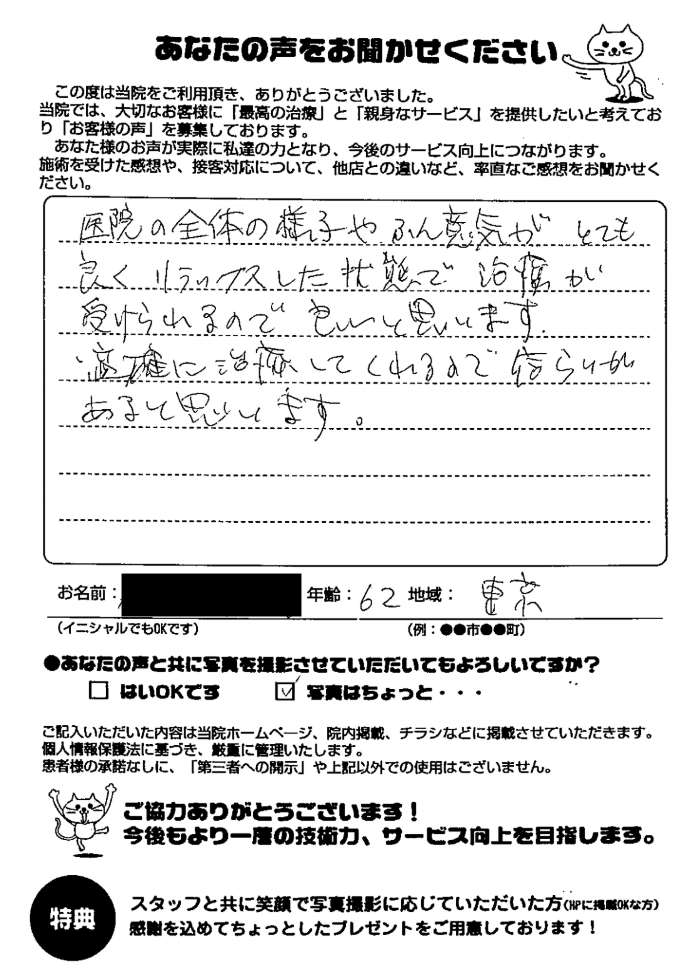 あなたの声をお聞かせください
この度は当院をご利用頂き、ありがとうございました。
当院では、大切なお客様に「最高の治療」と「親身なサービス」を提供したいと考えてお
り「お客様の声」を募集しております。
あなた様のお声が実際に私達の力となり、今後のサービス向上につながります。
施術を受けた感想や、接客対応について、他店との違いなど、率直なご感想をお聞かせく
ださい。
医院の全体の様子やふん意気が とても
良く リラックスした状態で 治療が
受けられるので 良いと思います.
適確に治療してくれるので 信らいが
あると思います。
お名前： 年齢：62 地域： 東京
(イニシャルでもOKです) (例：●●市●●町)
●あなたの声と共に写真を撮影させていただいてもよろしいですか？
□ はいOKです ☑ 写真はちょっと・・・
ご記入いただいた内容は当院ホームページ、院内掲載、チラシなどに掲載させていただきます。
個人情報保護法に基づき、厳重に管理いたします。
患者様の承諾なしに、「第三者への開示」や上記以外での使用はございません。
ご協力ありがとうございます！
今後もより一層の技術力、サービス向上を目指します。
特典
スタッフと共に笑顔で写真撮影に応じていただいた方(HPに掲載OKな方)
感謝を込めてちょっとしたプレゼントをご用意しております！